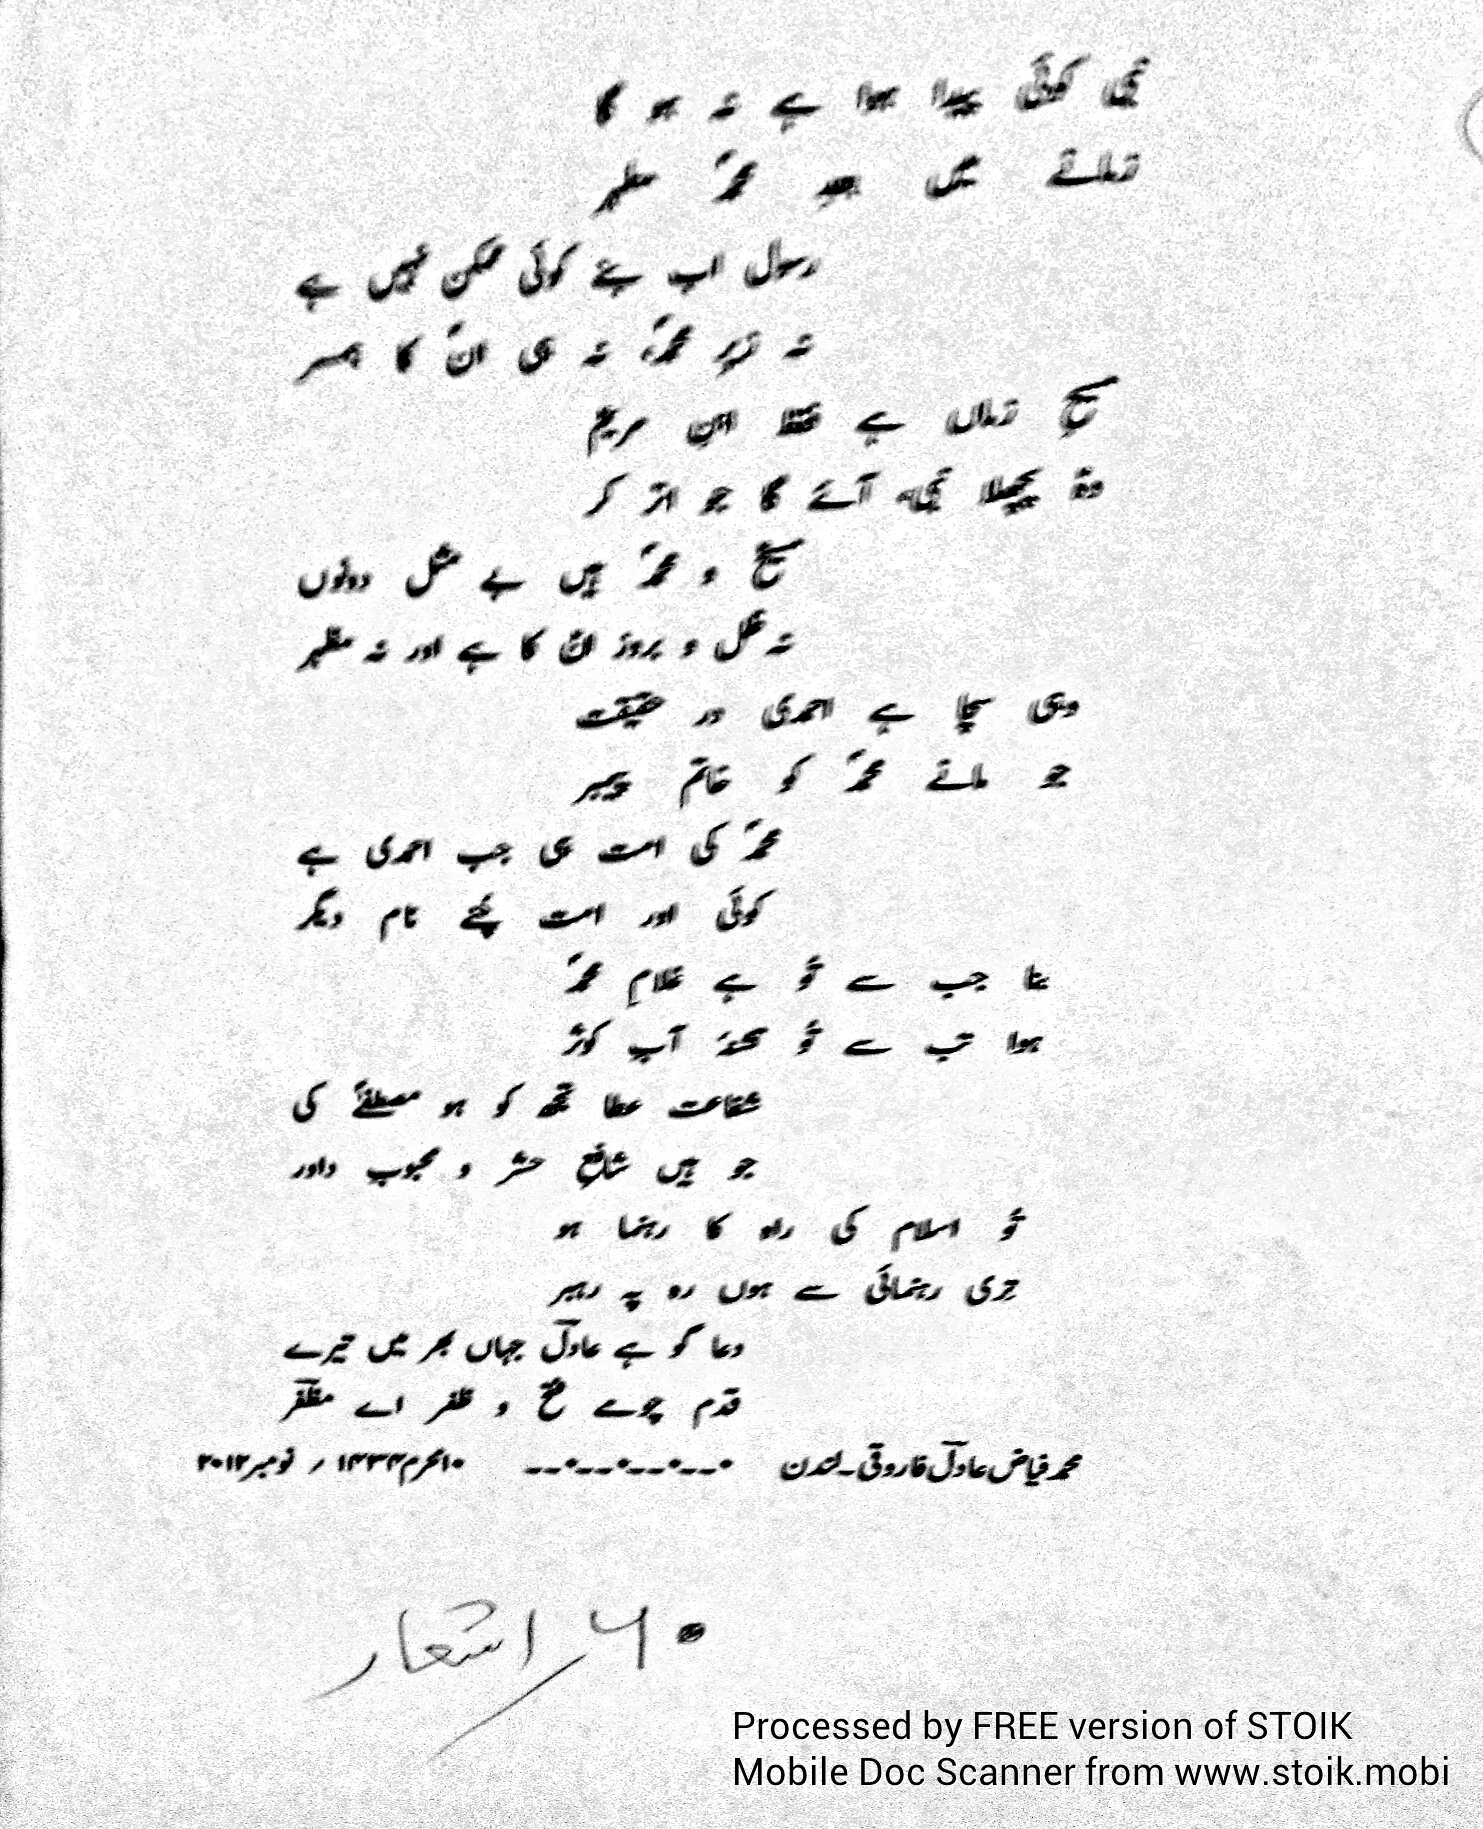 نبی کوئی پیدا ہوا ہے نہ ہو گا
زمانے میں بعدِ محمدؐ مطہر
رسول اب بنے کوئی ممکن نہیں ہے
نہ زیرِ محمدؐ، نہ ہی انؐ کا ہمسر
مسیحِ زماں ہے فقط ابنِ مریمؑ
وہ پچھلا نبی، آئے گا جو اتر کر
مسیحؑ و محمدؐ ہیں بے مثل دونوں
نہ ظل و بروز انؑ کا ہے اور نہ مظہر
وہی سچا ہے احمدی در حقیقت
جو مانے محمدؐ کو خاتم پیمبر
محمدؐ کی امت ہی جب احمدی ہے
کوئی اور امت چُنے نام دیگر
بنا جب سے تُو ہے غلامِ محمدؐ
ہوا تب سے تُو آبِ کوثر
شفاعت عطا تجھ کو ہو مصطفےٰؐ کی
جو ہیں شافعِ حشر و محبوب داور
تُو اسلام کی راہ کا رہنما ہو
تری رہنمائی سے ہوں رہ پہ رہبر
دعا گو ہے عادلؔ جہاں بھر میں تیرے
قدم چومے فتح و ظفر اے مظفرؔ
محمد فیاض عادلؔ فاروقی۔ لندن ۱۰محرم۱۴۳۴ / نومبر۲۰۱۲
۶۰ اشعار
Processed by FREE version of STOIK
Mobile Doc Scanner from www.stoik.mobi